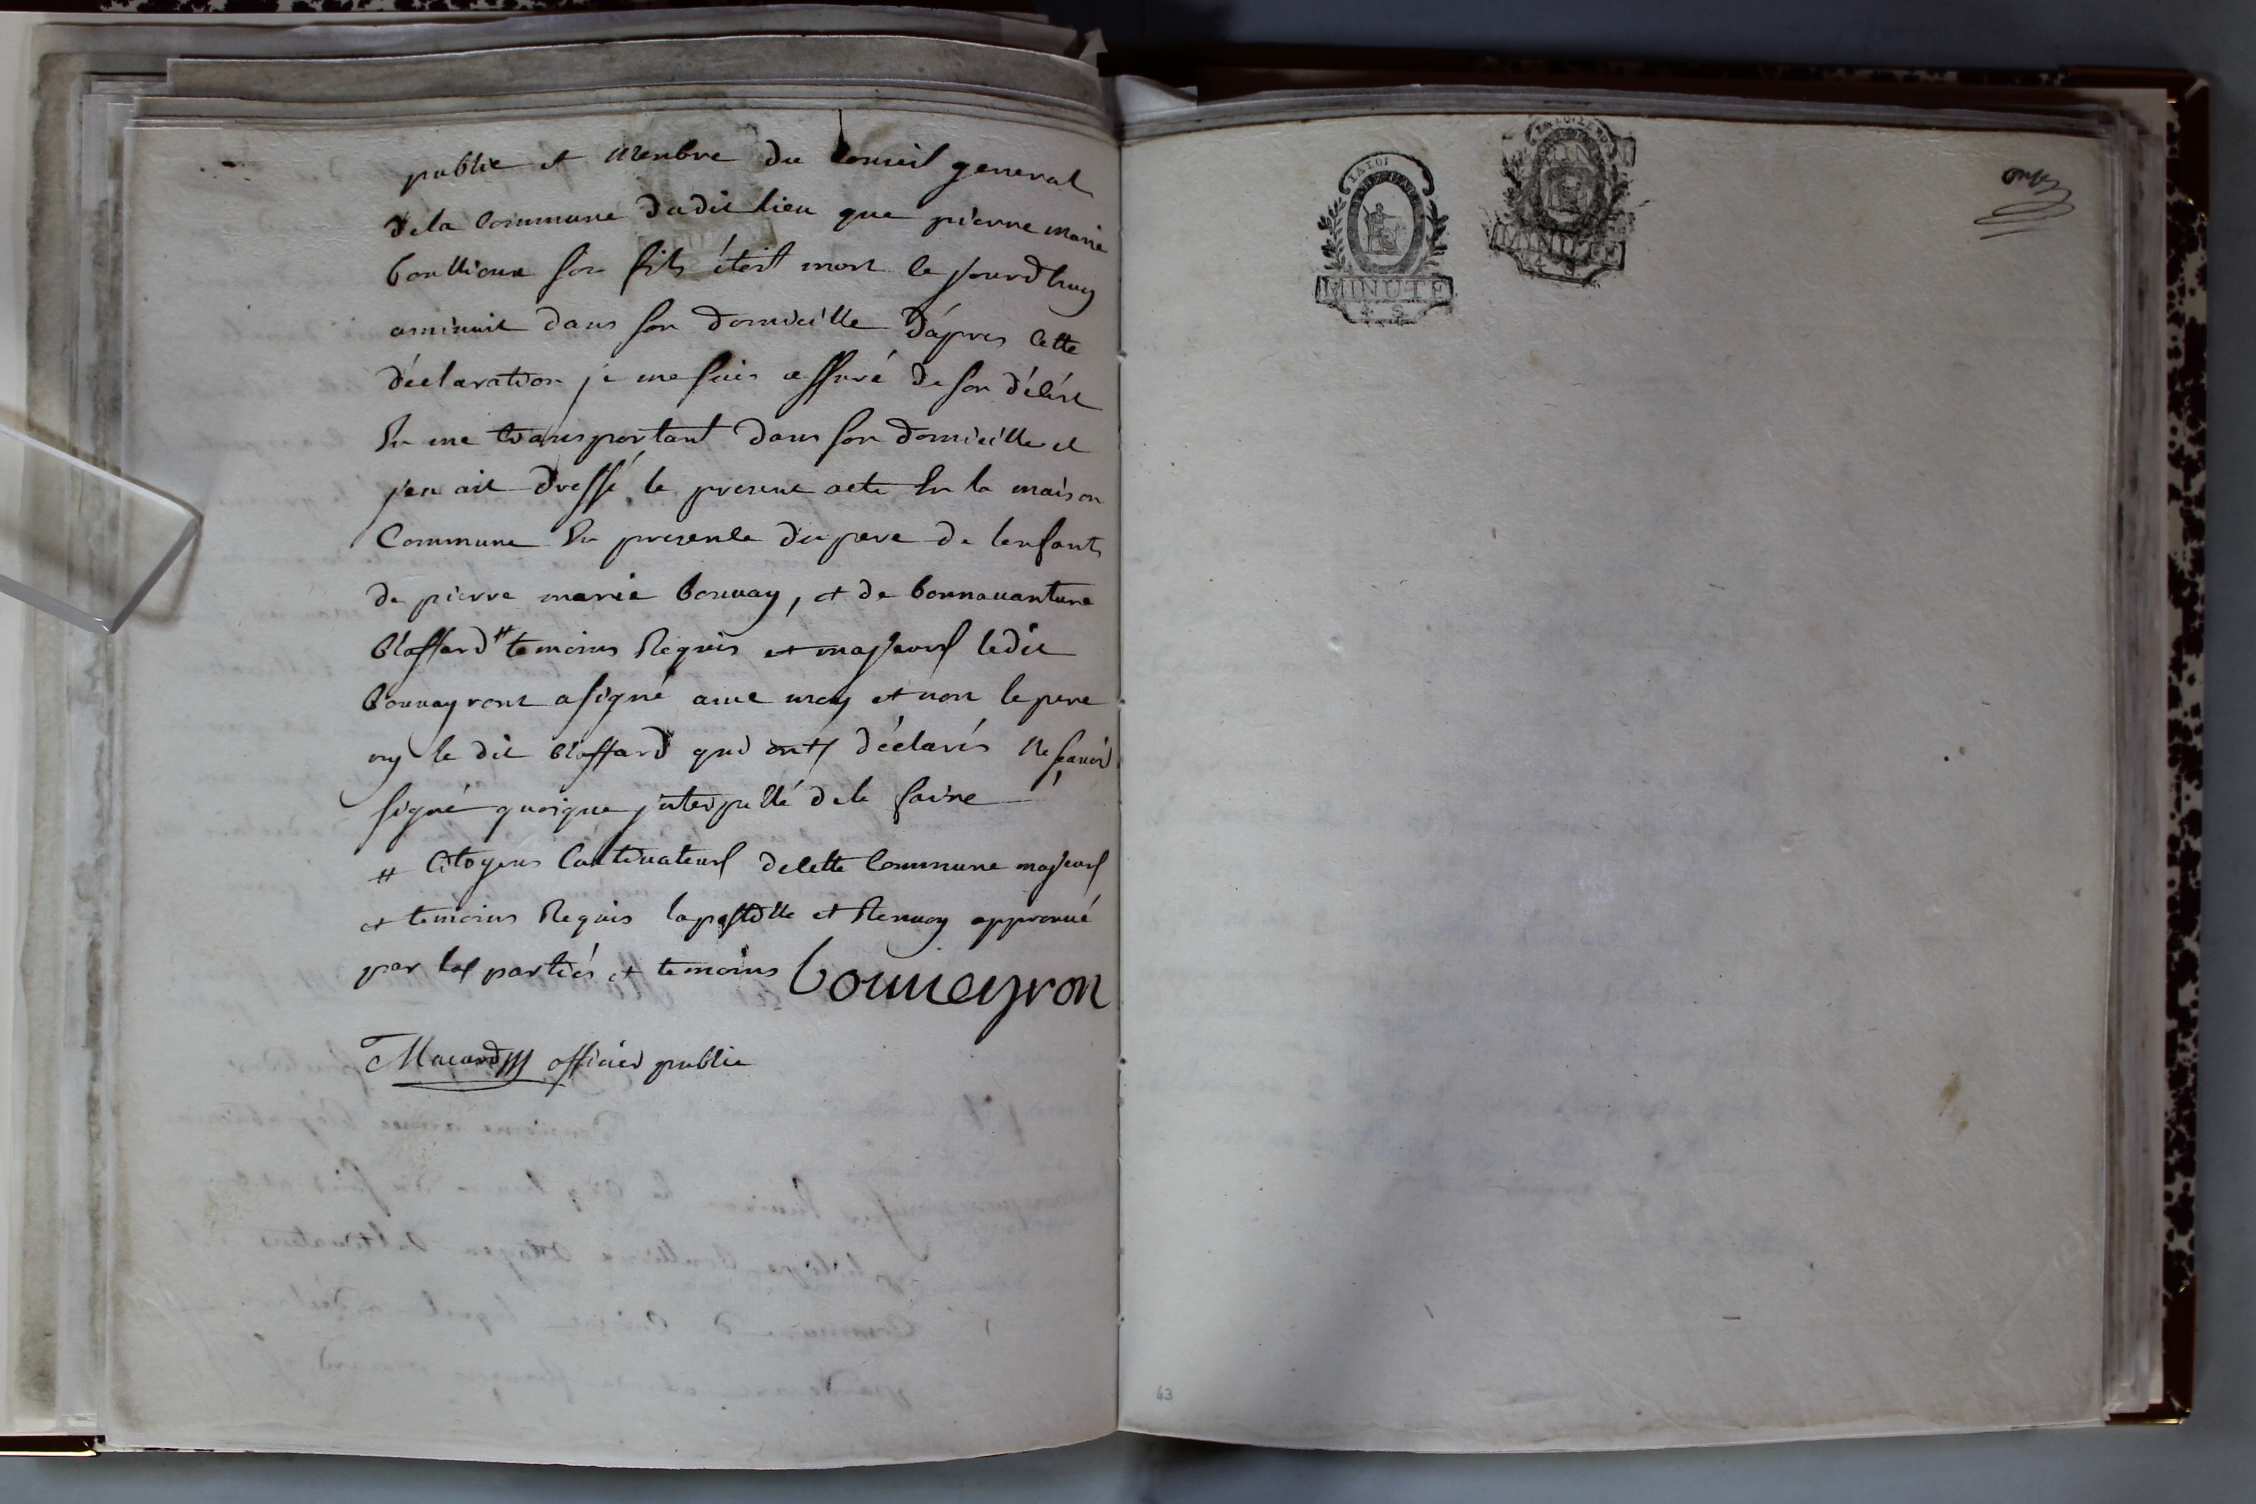 public et menbre du Conseil general
de la Commune dudit lieu que pierre marie
boullioux son fils étoit mort le jourdhuy
aminuit dans son domicille d'ápres cette
déclaration je me suis assuré de son décést
En me transportant dans son domicille et
j'en ait dressé le present acte En la maison
Commune En presence du pere de lenfant
de pierre marie bonnay, et de bonnavanture
blaffard # temoins Requis et majeurs ledit
bonnayront a signé avec moy et non le pere
ny le dit blaffard qui ont déclarés Ne scavoir
signé quoique jnterpellé de le faire
# Citoyens Cultivateurs de cette Commune majeurs
et temoins Requis lapostille et Renvoy approuvé
par les partiés et temoins bonneyron
Macard officier public
LA LOI
MINUTE
4 S
MINUTE
onze
43